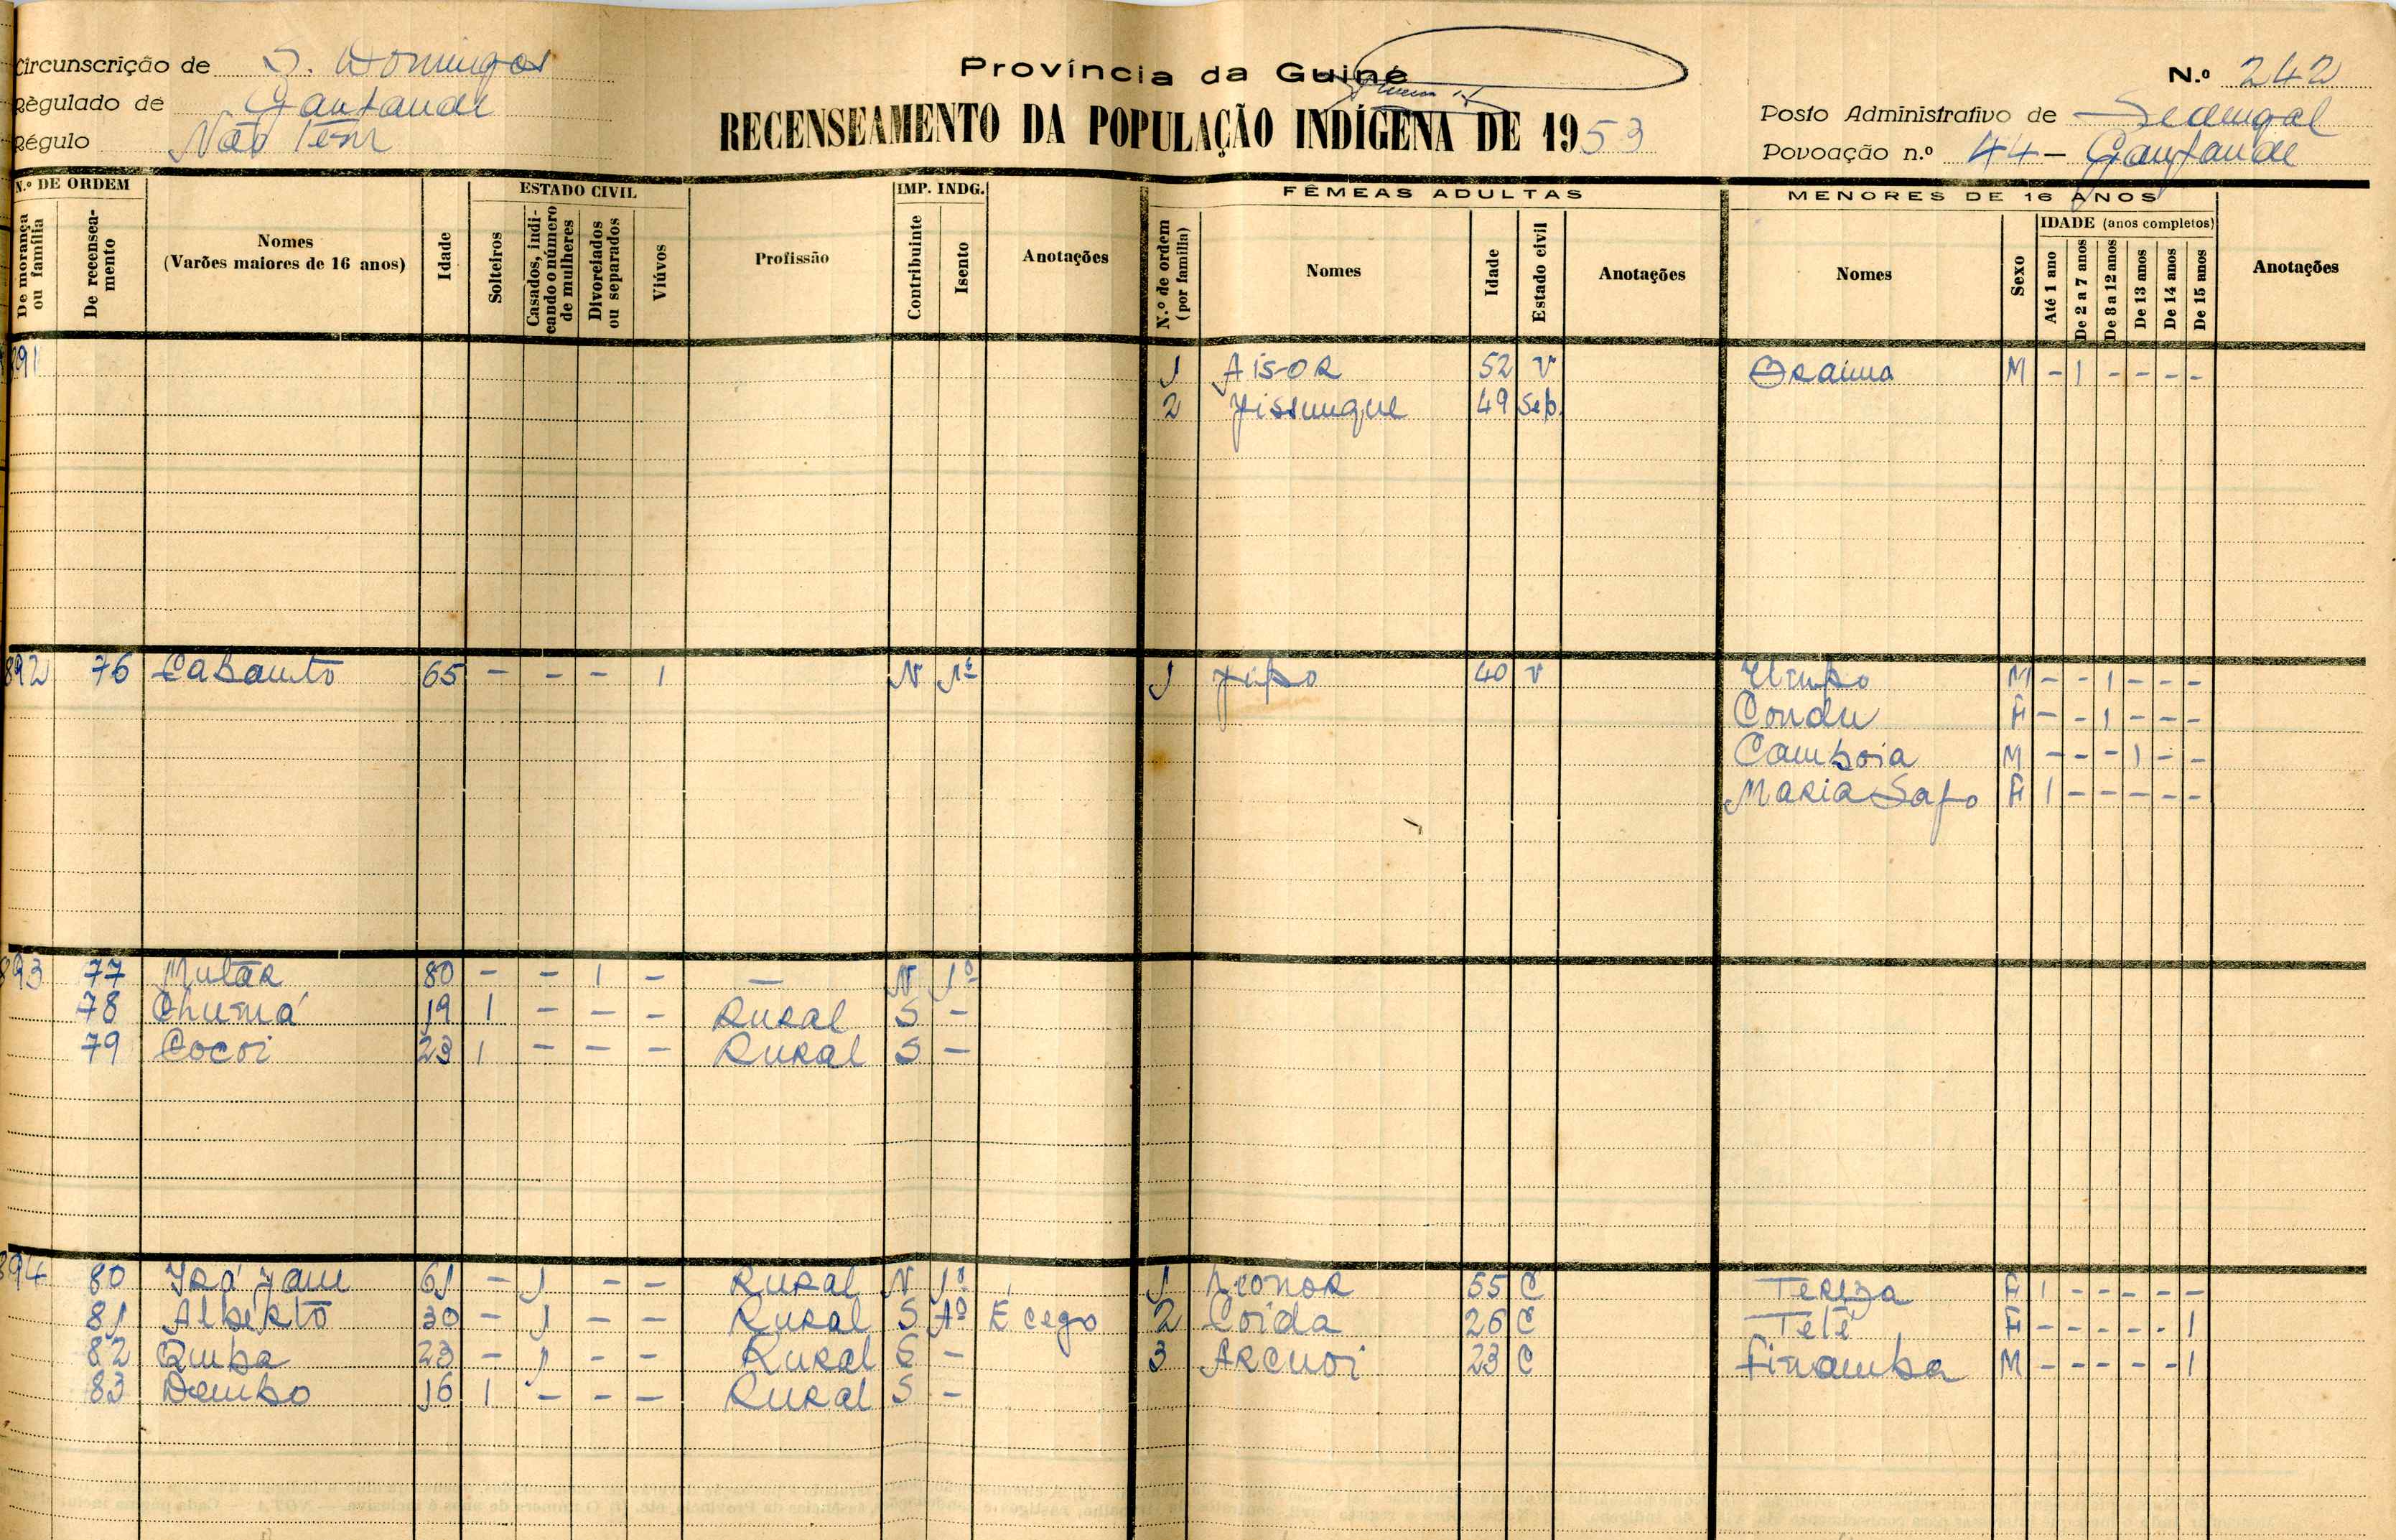 Circunscrição de S. Domingos
Régulado de
Régulo Não Tem
Província da Guiné
RECENSEAMENTO DA POPULAÇÃO INDÍGENA DE 1953
N.º 242
Posto Administrativo de Sedengal
Povoação n.º 44 –
N.º DE ORDEM
De morança ou família
De recenseamento
Nomes
(Varões maiores de 16 anos)
Idade
ESTADO CIVIL
Solteiros
Casados, indicando o número de mulheres
Divorciados ou separados
Viúvos
Profissão
IMP. INDG.
Contribuinte
Isento
Anotações
FÊMEAS ADULTAS
N.º de ordem (por família)
Nomes
Idade
Estado civil
Anotações
MENORES DE 16 ANOS
Nomes
Sexo
IDADE (anos completos)
Até 1 ano
De 2 a 7 anos
De 8 a 12 anos
De 13 anos
De 14 anos
De 15 anos
Anotações
891 1 Aisor 52 V Braima M - 1 - - - -
2 49 Sep.
892 76 Cabamto 65 - - - 1 N 1º 1 40 V M - - 1 - - -
Condu F - - 1 - - -
Camboia M - - - 1 - -
Maria Sapo F 1 - - - - -
893 77 Mutar 80 - - 1 - - N 1º
78 Chumá 19 1 - - - Rural S -
79 Cocoi 23 1 - - - Rural S -
894 80 61 - 1 - - Rural N 1º 1 Leonor 55 C Tereza F 1 - - - - -
81 Alberto 30 - 1 - - Rural S 1º É cego 2 Coida 26 C Teté F - - - - - 1
82 Quba 23 - 1 - - Rural S - 3 Arcuoi 23 C Finamba M - - - - - 1
83 Dembo 16 1 - - - Rural S -